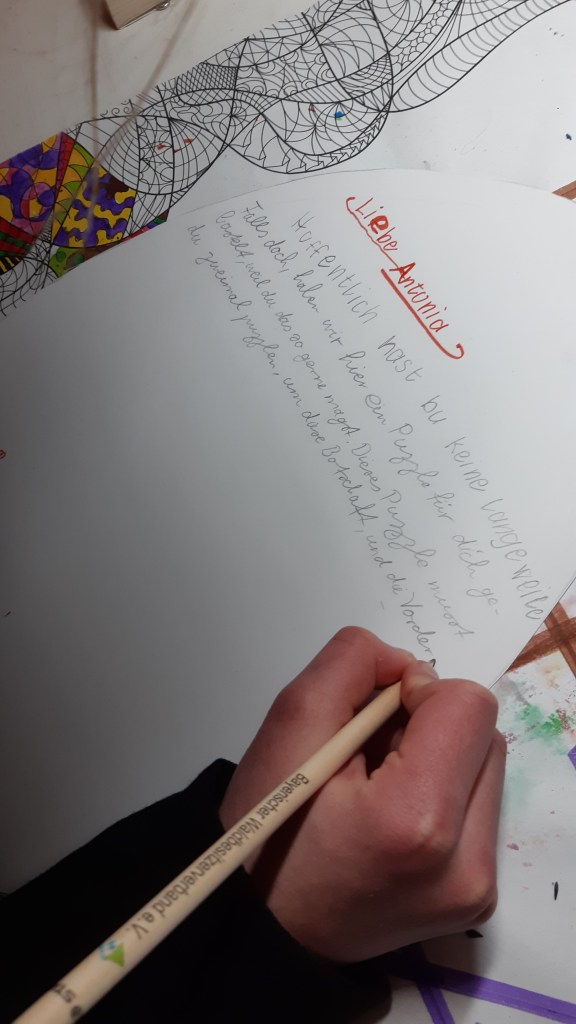 Liebe Antonia
Hoffentlich hast du keine Langeweile
Falls doch, haben wir hier ein Puzzle für dich ge-
bastelt, weil du das so gerne magst. Dieses Puzzle musst
du zweimal puzzlen, um diese Botschaft, und die Vorder
Bayerischer Waldbesitzerverband e.V.